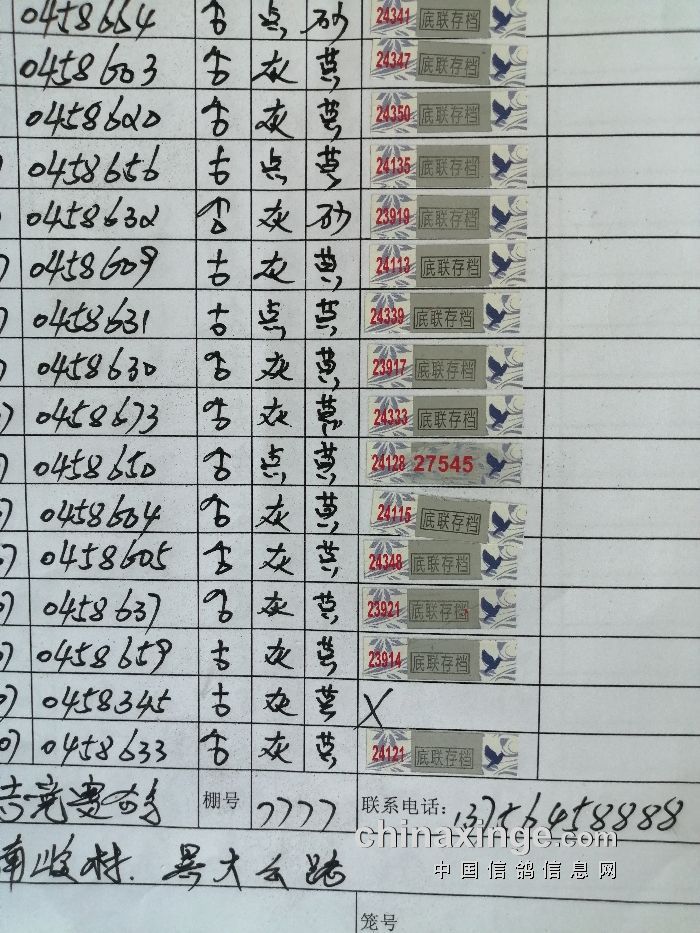 0458664 点 砂 24341 底联存档
0458603 灰 黄 24347 底联存档
0458620 灰 黄 24350 底联存档
0458656 点 黄 24135 底联存档
0458632 灰 砂 23919 底联存档
0458609 灰 黄 24113 底联存档
0458631 点 黄 24339 底联存档
0458630 灰 黄 23917 底联存档
0458673 灰 黄 24333 底联存档
0458650 点 黄 24128 27545
0458604 灰 黄 24115 底联存档
0458605 灰 黄 24348 底联存档
0458637 灰 黄 23921 底联存档
0458659 灰 黄 23914 底联存档
0458345 灰 黄 X
0458633 灰 黄 24121 底联存档
竞赛 棚号 7777 联系电话: 13756458888
chinaxinge.com
中国信鸽信息网
村.
笼号